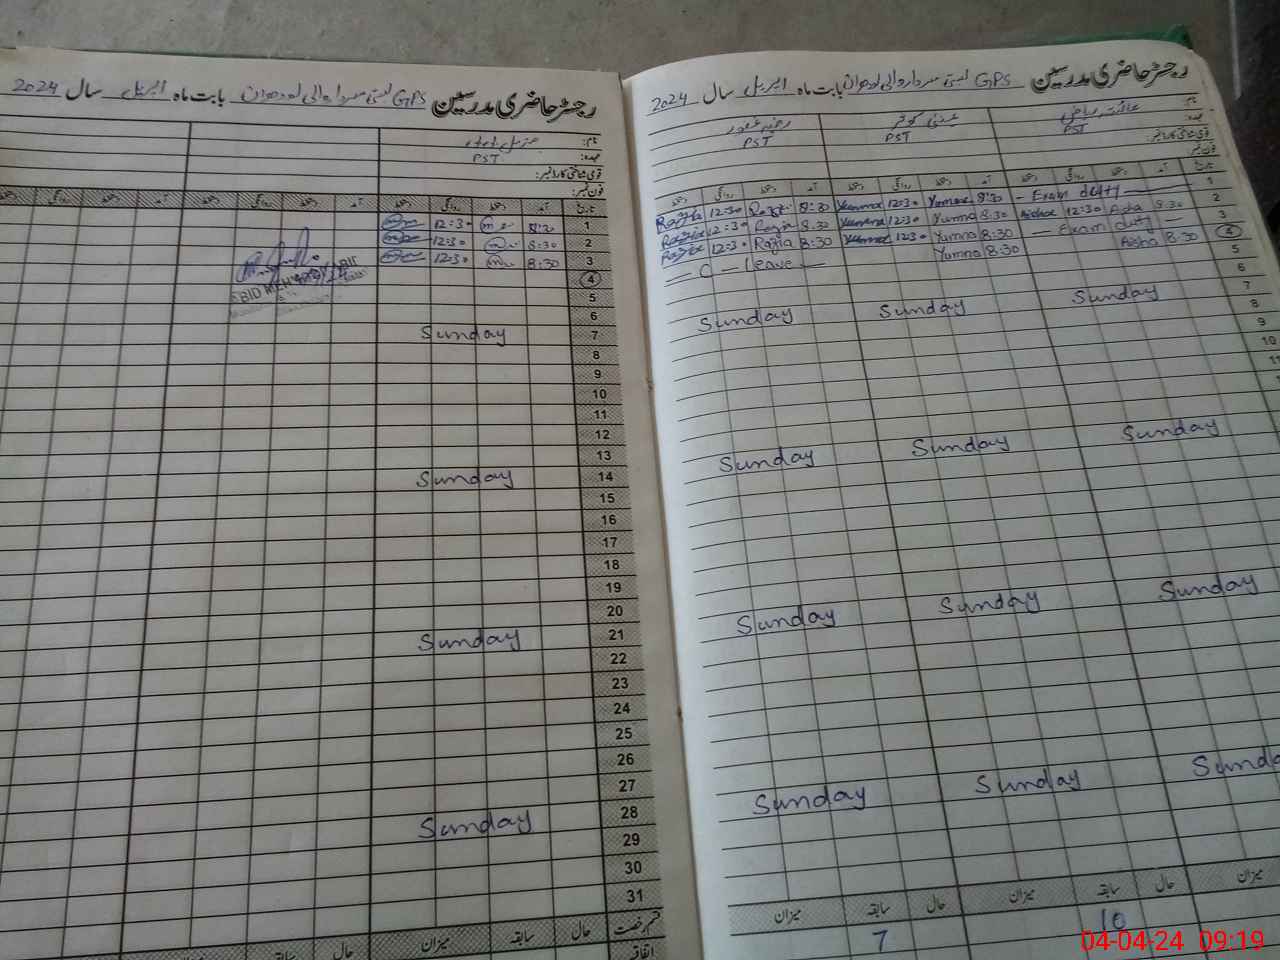 رجسٹر حاضری مدرسین GPS بستی سردار والی لودھراں بابت ماہ اپریل سال 2024
نام:
عہدہ: PST
قومی شناختی کارڈ نمبر:
فون نمبر:
تاریخ آمد دستخط روانگی دستخط آمد دستخط روانگی دستخط آمد دستخط روانگی
1 8:30 12:30
2 8:30 12:30
3 8:30 12:30
4
5
6
7 Sunday
8
9
10
11
12
13
14 Sunday
15
16
17
18
19
20
21 Sunday
22
23
24
25
26
27
28 Sunday
29
30
31
قسم رخصت حال سابقہ میزان حال سابقہ میزان حال
اتفاقیہ
رجسٹر حاضری مدرسین GPS بستی سردار والی لودھراں بابت ماہ اپریل سال 2024
نام:
PST PST PST
تاریخ آمد دستخط روانگی دستخط آمد دستخط روانگی دستخط آمد دستخط روانگی دستخط
1 — Exam duty — 8:30 Yumna 12:30 Yumna 8:30 Razia 12:30 Razia
2 8:30 Aisha 12:30 Aisha 8:30 Yumna 12:30 Yumna 8:30 Razia 12:30 Razia
3 — Exam duty — 8:30 Yumna 12:30 Yumna 8:30 Razia 12:30 Razia
4 8:30 Aisha 8:30 Yumna — C — leave —
5
6
7 Sunday Sunday Sunday
8
9
10
11
Sunday Sunday Sunday
Sunday Sunday Sunday
Sunday Sunday
میزان حال سابقہ میزان حال سابقہ میزان
10 7
04-04-24 09:19